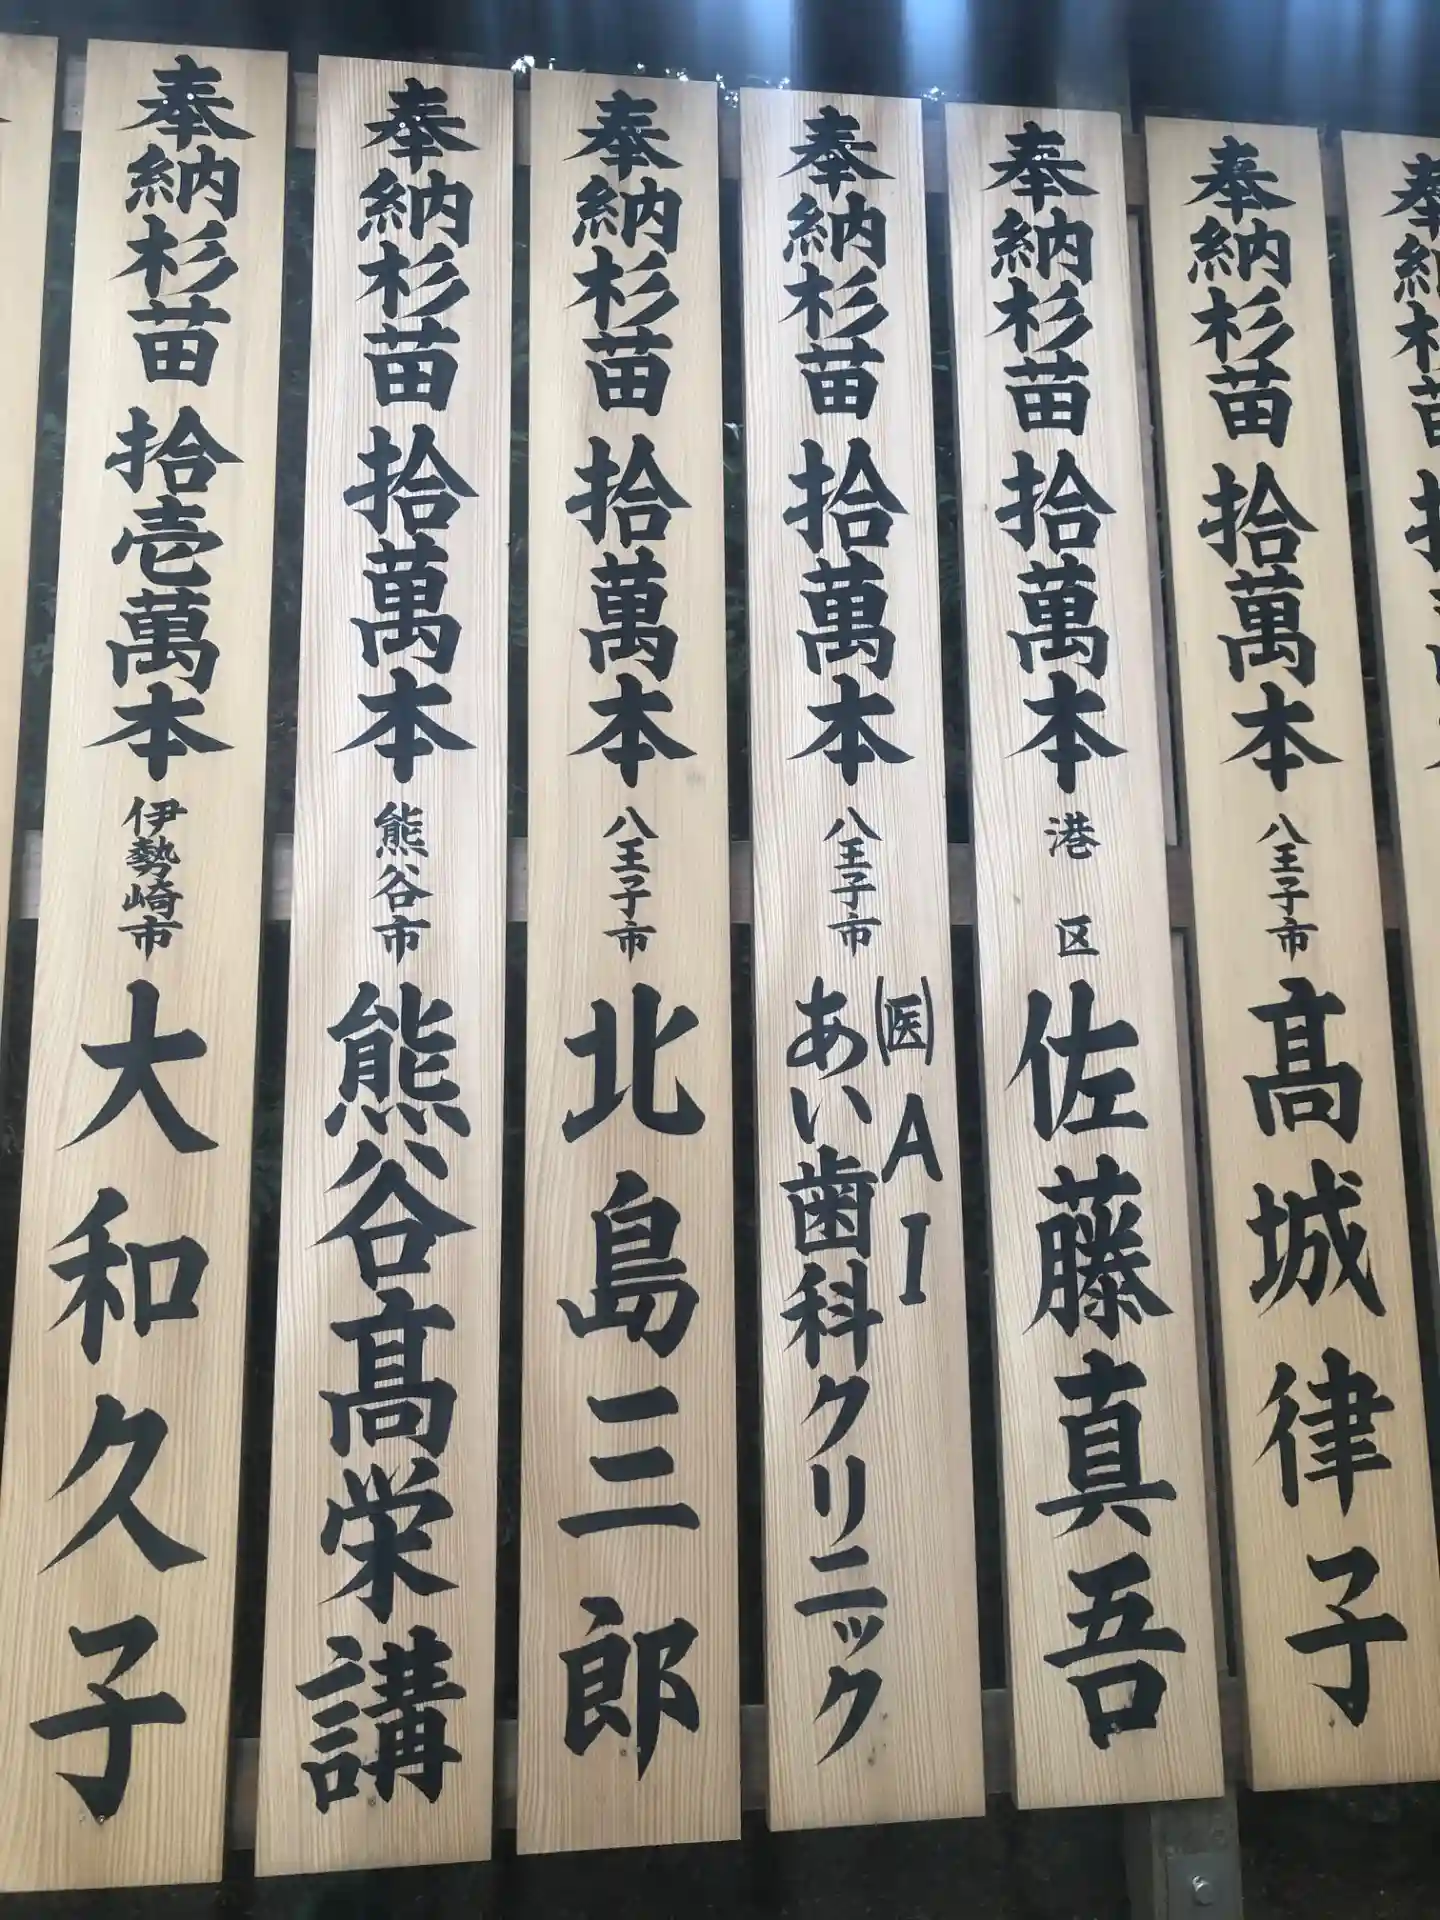 奉納杉苗 拾萬本 八王子市 髙城律子
奉納杉苗 拾萬本 港区 佐藤真吾
奉納杉苗 拾萬本 八王子市 ㈩医 AI
あい歯科クリニック
奉納杉苗 拾萬本 八王子市 北島三郎
奉納杉苗 拾萬本 熊谷市 熊谷髙栄講
奉納杉苗 拾壱萬本 伊勢崎市 大和久子